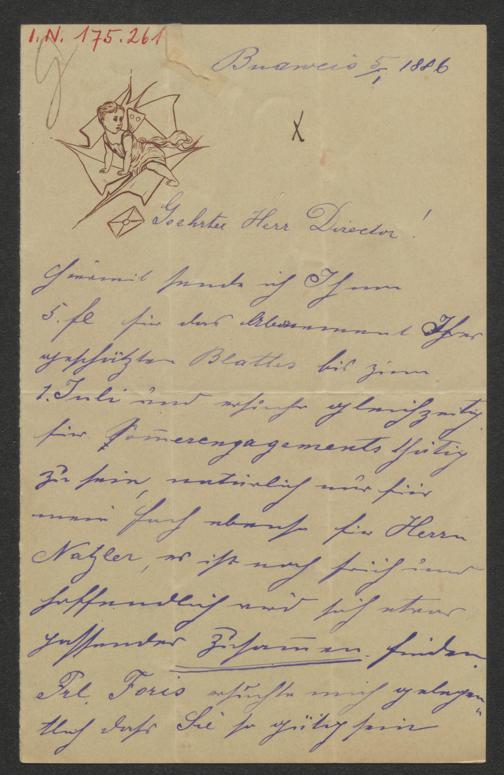 I.N. 175.261
Budweis 5/1 1886
Geehrter Herr Director!
Hiermit sende ich Ihnen
5. fl für das Abonnement Ihres
geschätzten Blattes bis zum
1. Juli und ersuche gleichzeitig
für Som̅erengagements thätig
zu sein, natürlich nur für
mein Fach ebenso für Herrn
Natzler, es ist noch früh und
hoffendlich wird sich etwas
passendes zusam̅en finden.
Frl. Foris ersuchte mich gelegen-
tlich dass Sie so gütig sein